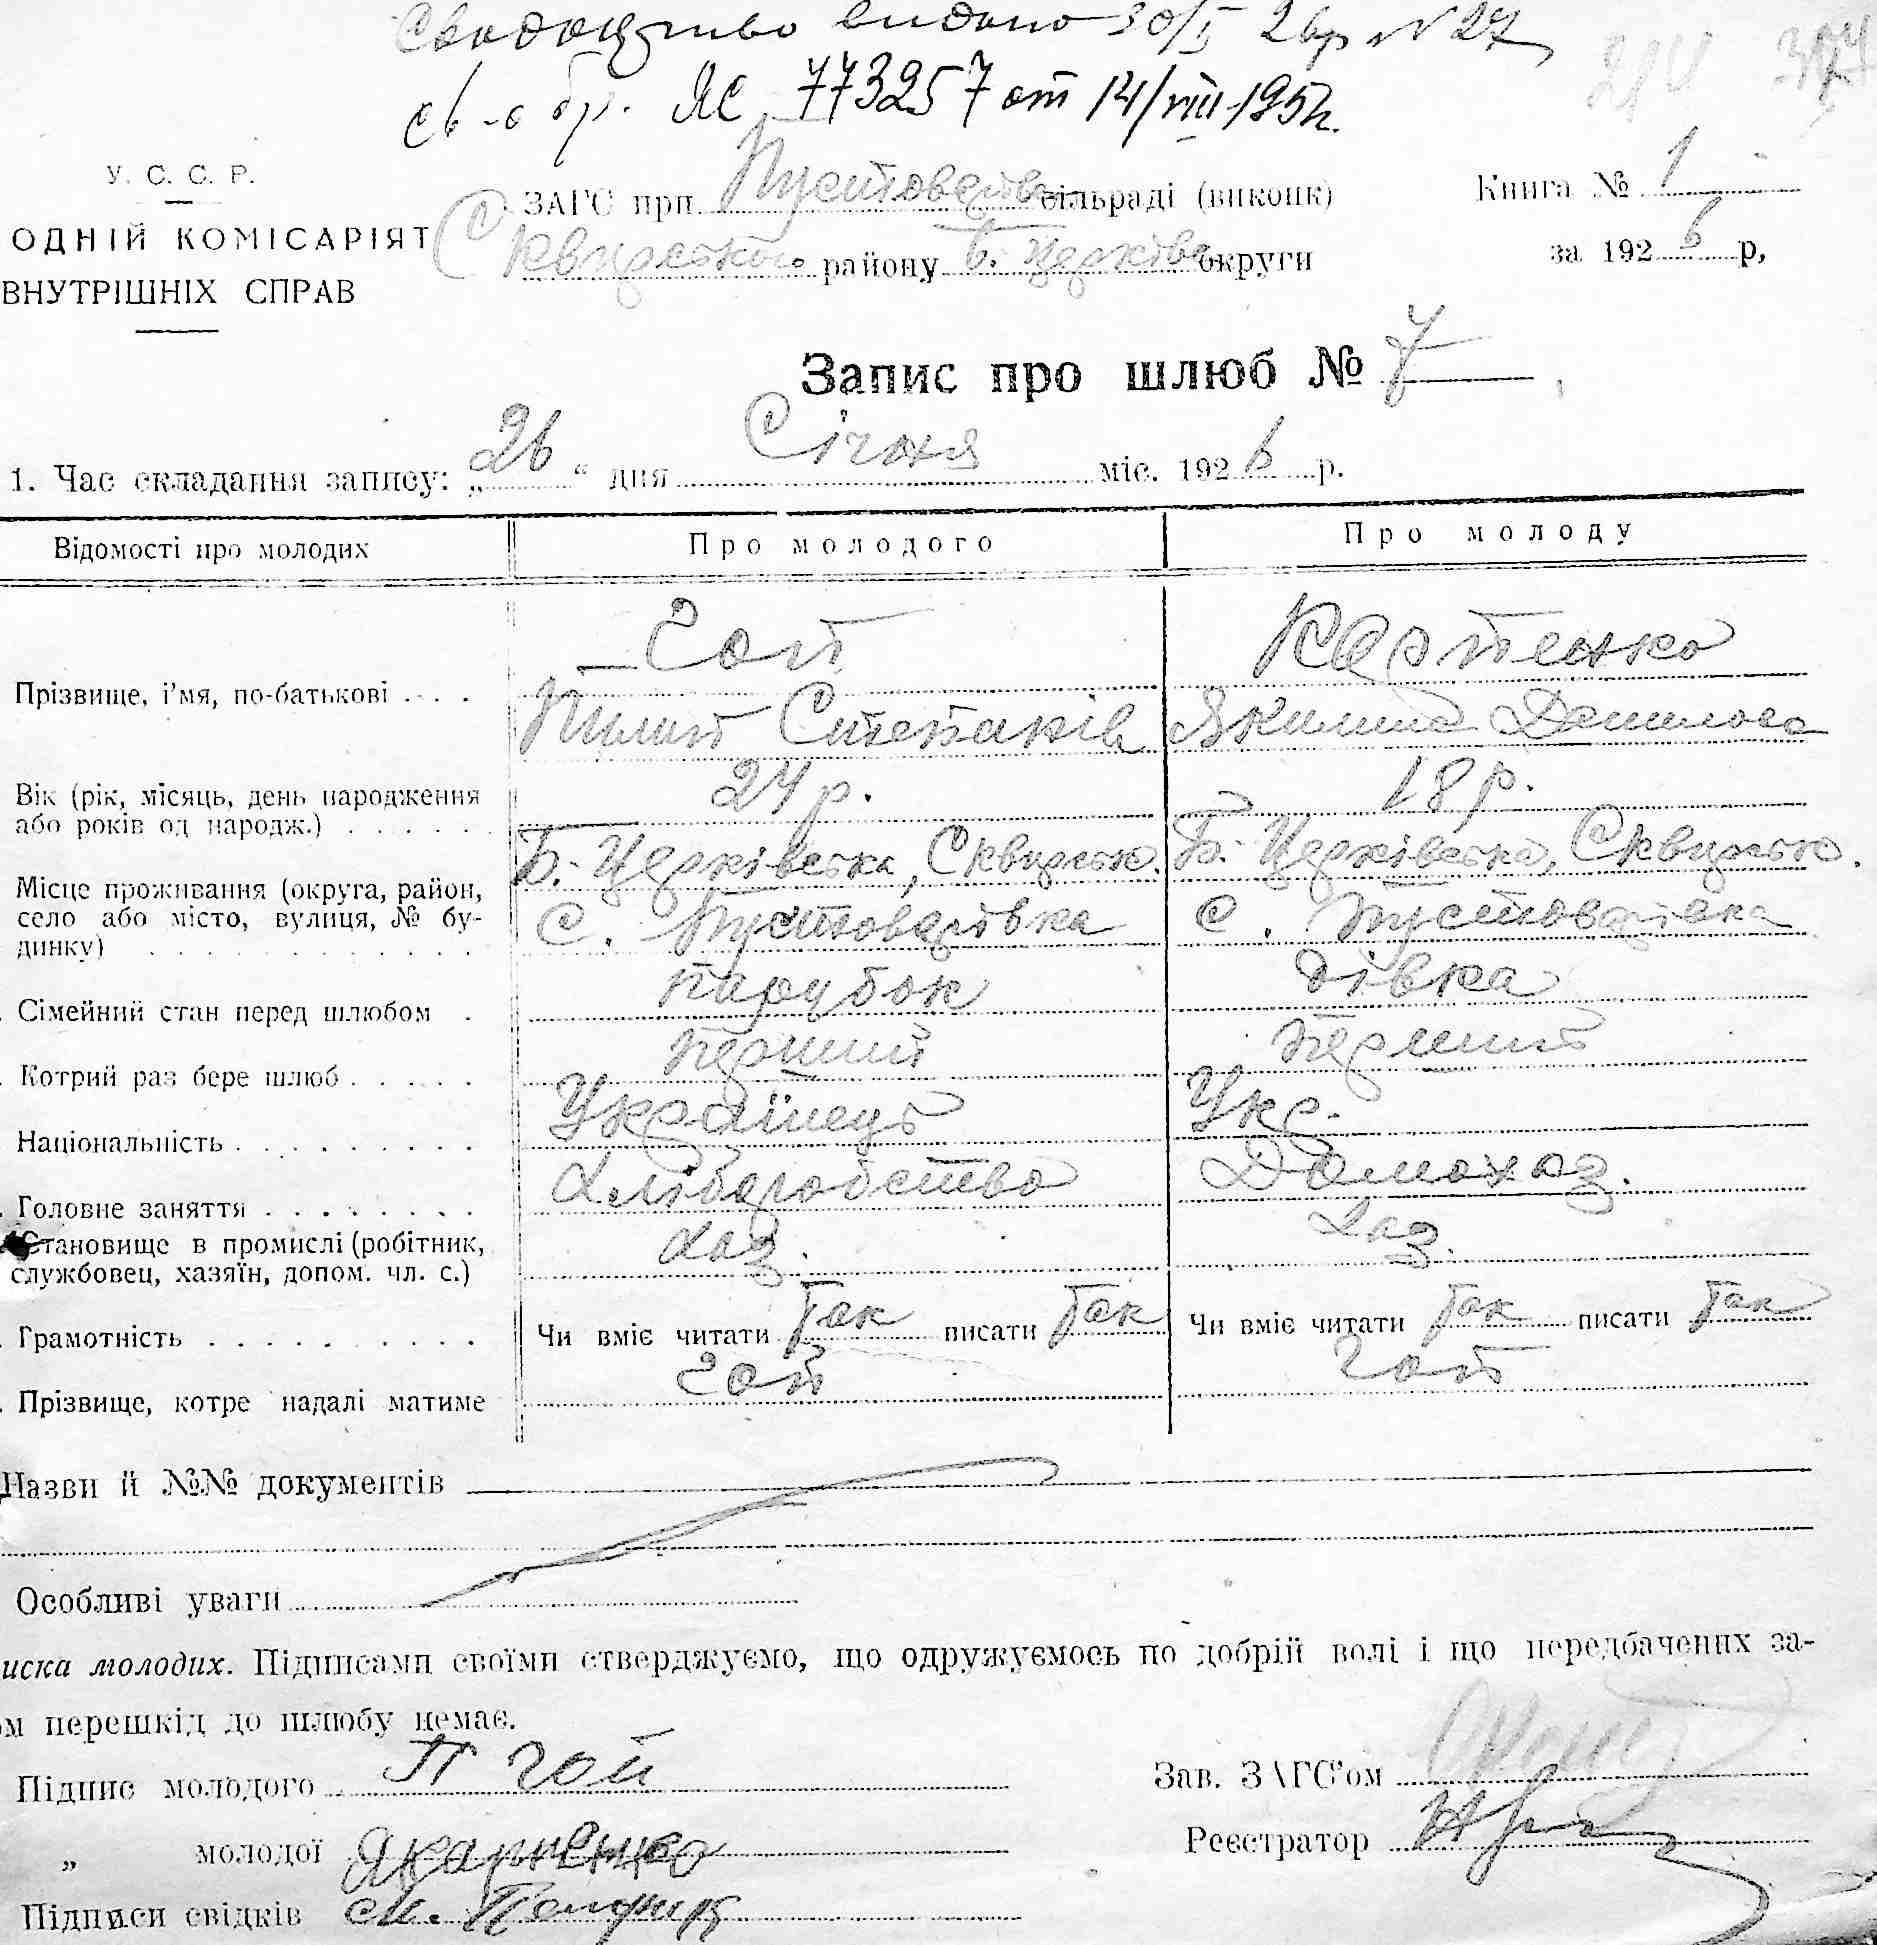 Свидоцтво видано 30/I 26р N 27
св-о бр. ЯС 773257 от 14/VIII-195 г.
У. С. С. Р.
ЗАГС при Пустоварів сільраді (виконк)
Книга № 1
ОДНІЙ КОМІСАРІЯТ
Сквирського району Б. Церківс округи
за 1926 р,
ВНУТРІШНІХ СПРАВ
Запис про шлюб № 7
1. Час складання запису: „26“ дня Січня міс. 1926 р.
Відомості про молодих
Про молодого
Про молоду
Прізвище, і'мя, по-батькові . . . .
Гой
Пилип Степанів
Карпенко
Якилина Данилова
Вік (рік, місяць, день народження
або років од народж.) . . . . . .
24 р.
18 р.
Місце проживання (округа, район,
село або місто, вулиця, № бу-
динку) . . . . . . . . . . .
Б.-Церківська, Сквирськ.
с. Пустоварівка
Б.-Церківська, Сквирськ.
с. Пустоварівка
. Сімейний стан перед шлюбом .
парубок
дівка
. Котрий раз бере шлюб . . . . .
перший
перший
Національність . . . . . . . . .
Українець
Укр.
. Головне заняття . . . . . . . .
Хліборобство
Домохоз.
Становище в промислі (робітник,
службовец, хазяїн, допом. чл. с.)
хаз.
Хаз.
. Грамотність . . . . . . . . . .
Чи вміє читати так писати так
Чи вміє читати так писати так
. Прізвище, котре надалі матиме
Гой
Гой
Назви й №№ документів
Особливі уваги
иска молодих. Підписами своїми стверджуємо, що одружуємось по добрій волі і що передбачених за-
ом перешкід до шлюбу немає.
Підпис молодого П Гой
Зав. ЗАГС'ом
„ молодої Якарпенко
Реєстратор
Підписи свідків